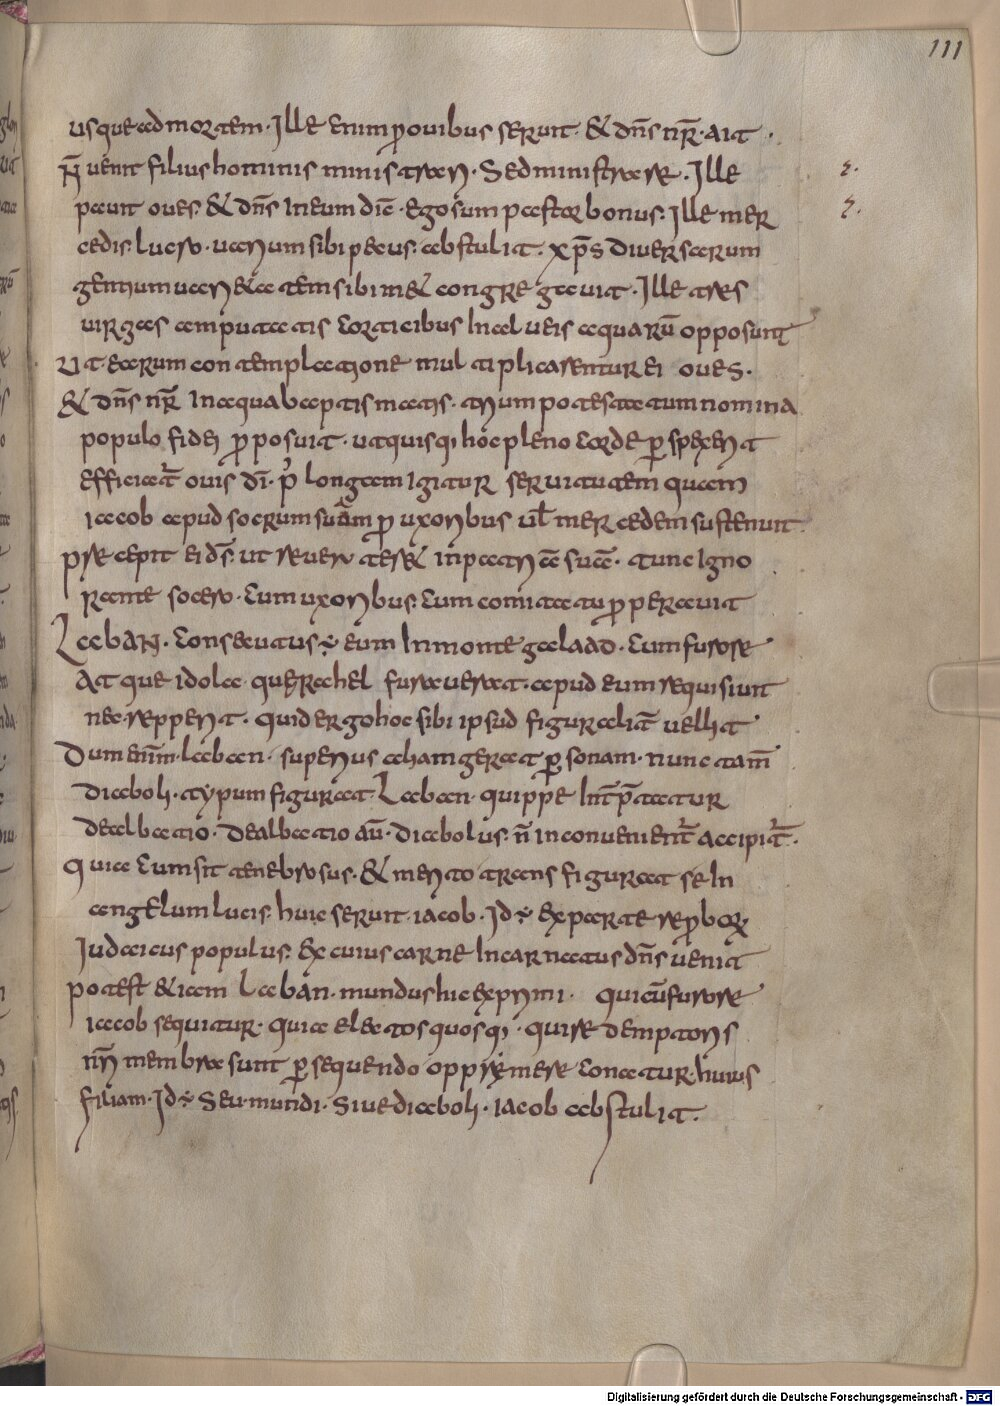 111
usque ad mortem. Ille enim ꝓ ovibus seruit. & dn̄s nr̄. ait.
ņ̄ uenit filius hominis ministrari. Sed ministrare. Ille
pauit oues & dn̄s In eum dic̄. Ego sum pastor bonus. Ille mer
cedis. lucro. uarium sibi pecus. abstulit. xp̄s diuersarum
gentium uarietatem sibimet congregauit. Ille tres
uirgas amputatis corticibus In alueis aquarū opposuit
Ut earum contemplatione multiplicarentur ei oues.
& dn̄s nr̄ In aqua baptismatis. trium potestatum nomina
populo fidei ꝓposuit. ut quisq; hoc pleno corde ꝑspexerit
efficiat̄ ouis dī. p̄ longam Igitur seruitutem quam
iacob apud socrum suam ꝓ uxoribus ul̄ mercedem sustenuit
precepit ei ds̄. ut reuerteret in patriā suā. tunc Igno
rante socero. Cum uxoribus. cum comitatu ꝓperauit
Laban. Consecutus ÷ eum In monte galaad. Cum furore
At que idola que rachel furauerat. apud eum requisiuit
nec repperit. quid ergo hoc sibi ipsud figuraliт̄ uellit
Dum enim̄. laban. superius acham gerat ꝑsonam. nunc tam̄
diaboli. typum figurat. Laban. quippe Int̄p̄tatur
dealbatio. Dealbatio aū. diabolus. n̄ inconuenient̄ accipit̄.
quia Cum sit tenebrosus. & merito trans figurat se In
angelum lucis. huic seruit. iacob. Id ÷ ex parte reꝓboꝝ
Iudaicus populus. Ex cuius carne Incarnatus dn̄s uenit
potest etiam Laban. mundus hic exprimi. qui cū furore
iacob sequitur. quia electos quosq;. qui redemptoris
nr̄i membra sunt ꝑsequendo opprimere conatur. huius
filiam. Id ÷ Seu. mundi. Siue diaboli. iacob abstulit.
Digitalisierung gefördert durch die Deutsche Forschungsgemeinschaft - DFG